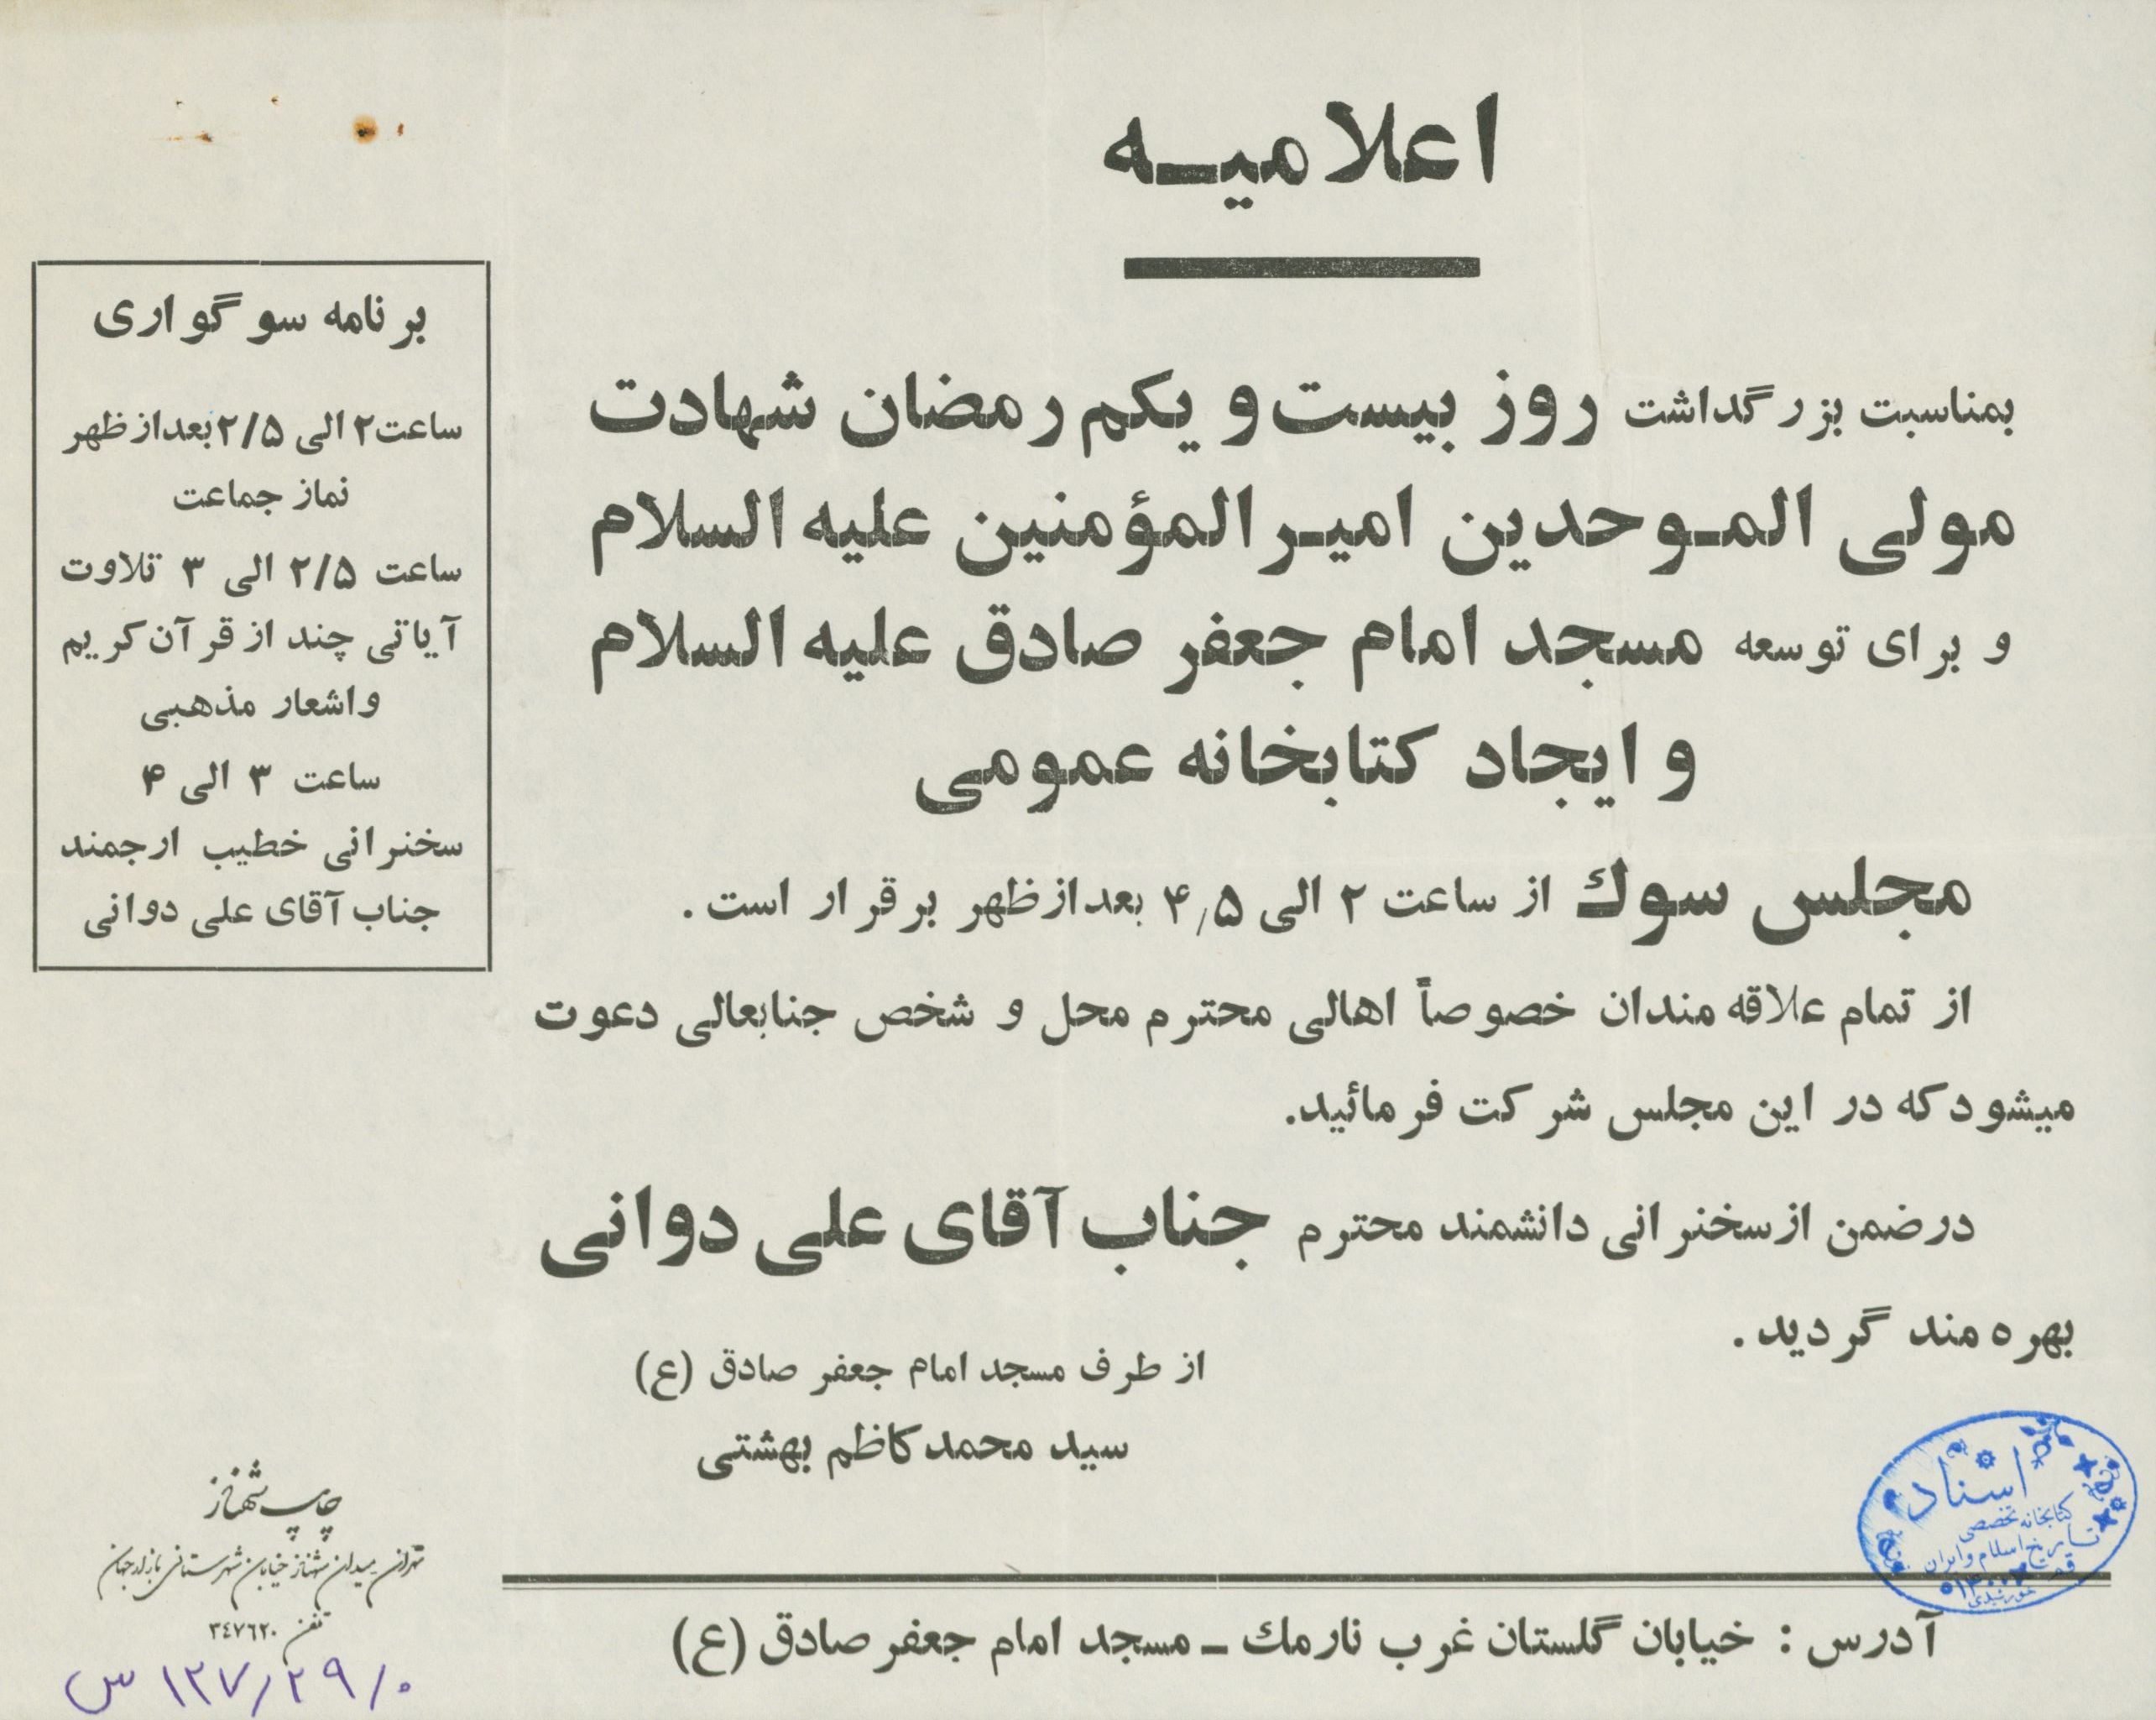 اعلامیه
بمناسبت بزرگداشت روز بیست و یکم رمضان شهادت
مولی الموحدین امیرالمؤمنین علیه السلام
و برای توسعه مسجد امام جعفر صادق علیه السلام
و ایجاد کتابخانه عمومی
مجلس سوك از ساعت ۲ الی ۴٫۵ بعدازظهر برقرار است.
از تمام علاقه مندان خصوصاً اهالی محترم محل و شخص جنابعالی دعوت
میشود که در این مجلس شرکت فرمائید.
درضمن از سخنرانی دانشمند محترم جناب آقای علی دوانی
بهره مند گردید.
از طرف مسجد امام جعفر صادق (ع)
سید محمد کاظم بهشتی
برنامه سوگواری
ساعت ۲ الی ۲/۵ بعدازظهر
نماز جماعت
ساعت ۲/۵ الی ۳ تلاوت
آیاتی چند از قرآن کریم
و اشعار مذهبی
ساعت ۳ الی ۴
سخنرانی خطیب ارجمند
جناب آقای علی دوانی
اسناد
کتابخانه تخصصی
تاریخ اسلام و ایران
قم
آدرس : خیابان گلستان غرب نارمك ــ مسجد امام جعفر صادق (ع)
چاپ شهناز
تهران میدان شهناز خیابان شهرستانی بازار جهان
تلفن ۳۴۷۶۲۰